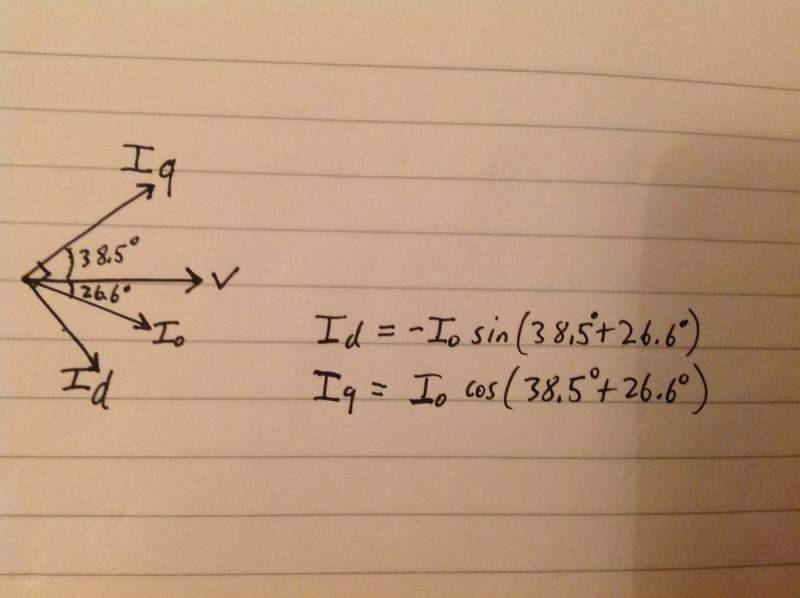 Iq
38.5°
V
26.6°
Io
Id
Id = -Io sin(38.5°+26.6°)
Iq = Io cos(38.5°+26.6°)